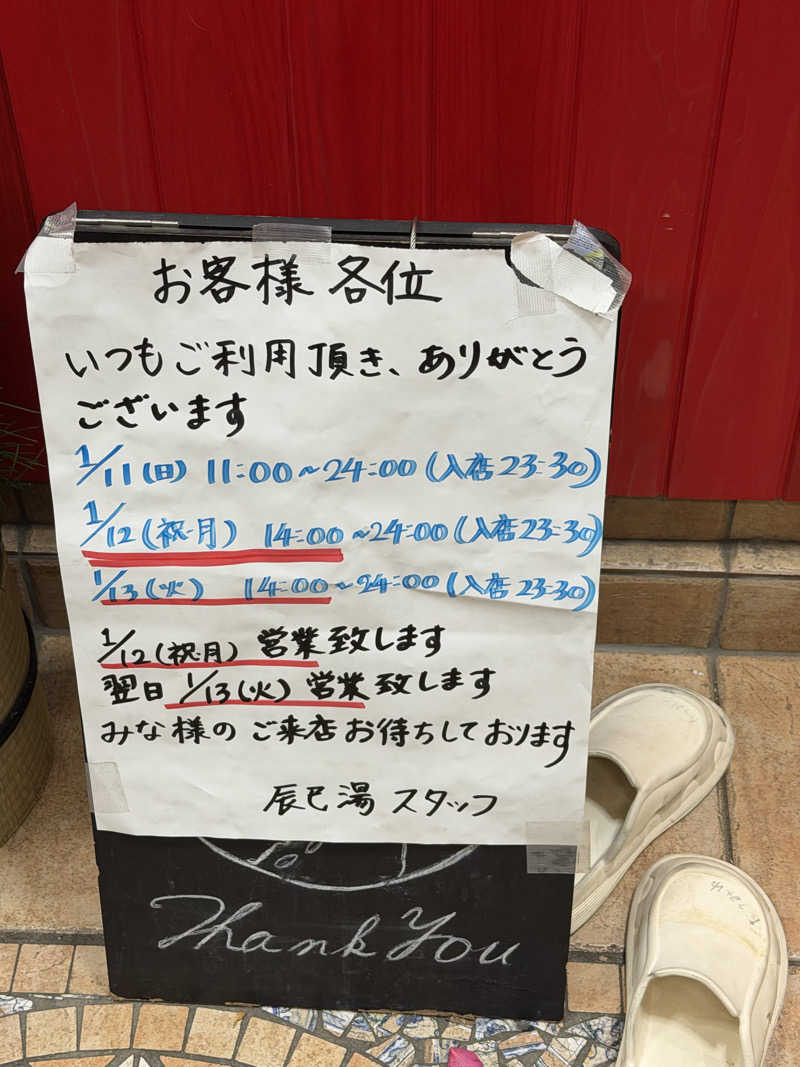 お客様 各位
いつもご利用頂き、ありがとう
ございます
1/11(日) 11:00～24:00(入店23:30)
1/12(祝・月) 14:00～24:00(入店23:30)
1/13(火) 14:00～24:00(入店23:30)
1/12(祝・月) 営業致します
翌日 1/13(火) 営業致します
みな様のご来店お待ちしております
辰巳湯 スタッフ
Thank You